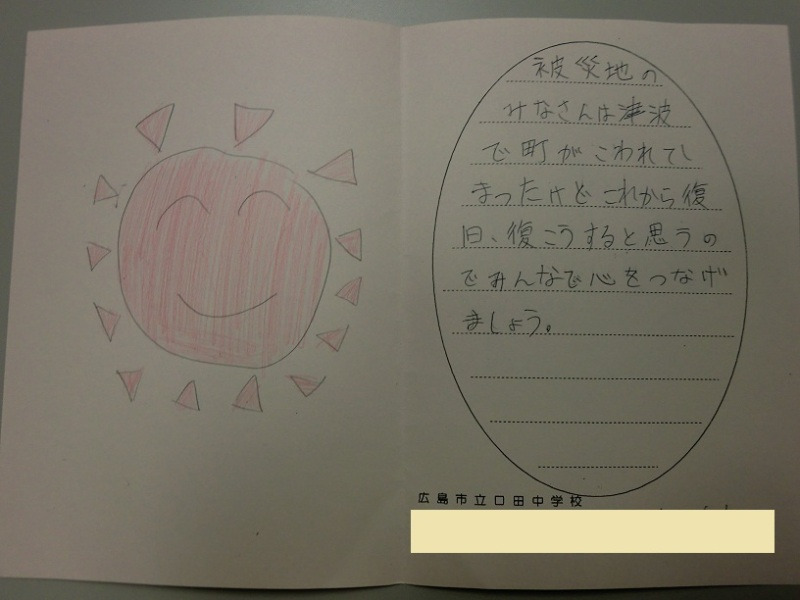 被災地の
みなさんは津波
で町がこわれてし
まったけどこれから復
旧、復こうすると思うの
でみんなで心をつなげ
ましょう。
広島市立口田中学校